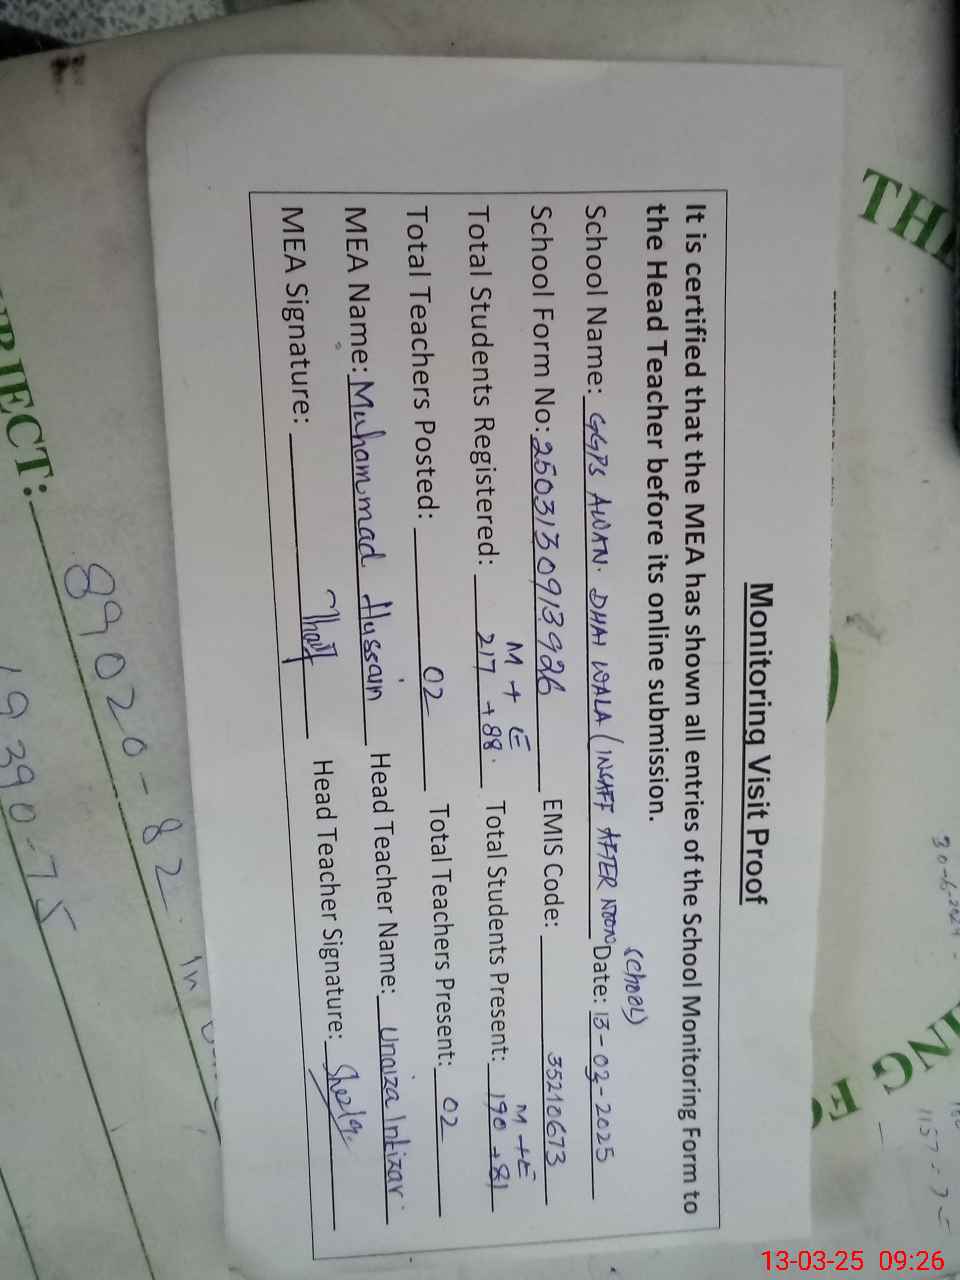 Monitoring Visit Proof
It is certified that the MEA has shown all entries of the School Monitoring Form to
the Head Teacher before its online submission.
(School)
School Name: GGPS AWAN DHAI WALA (INSAFF AFTER NOON Date: 13-03-2025
School Form No: 2503130913926 EMIS Code: 35210673
M + E M + E
Total Students Registered: 217 + 88. Total Students Present: 190 + 81
Total Teachers Posted: 02 Total Teachers Present: 02
MEA Name: Muhammad Hussain Head Teacher Name: Unaiza Intizar
MEA Signature: Head Teacher Signature:
89020-82
19390-75
TH
ING
F
JECT:
30-6-2024
1157
13-03-25 09:26